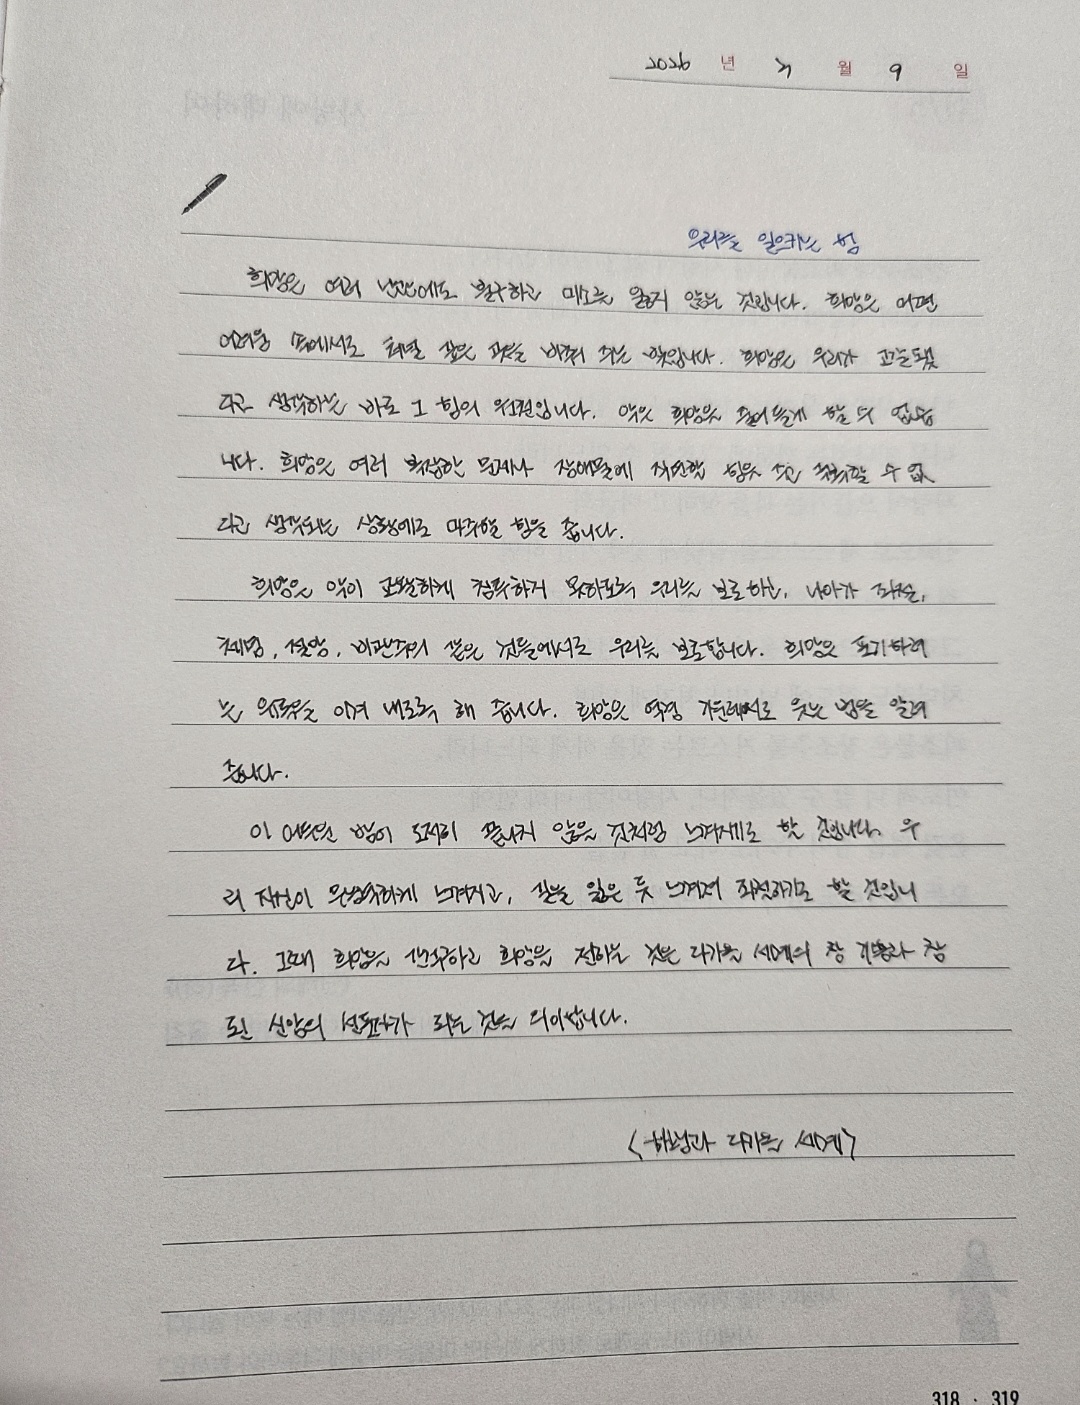 2026 년 2 월 9 일
우리를 일으키는 힘
희망은 여러 난관에도 불구하고 미소를 잃지 않는 것입니다. 희망은 어떤
어려움 속에서도 제일 좋은 것을 바꿔 주는 빛입니다. 희망은 우리가
다고 생각하는 바로 그 힘의 원천입니다. 악은 희망을 할 수 없습
니다. 희망은 여러 복잡한 문제나 장애물에 직면할 힘을 할 수 없
다고 생각되는 상황에도 마주할 힘을 줍니다.
희망은 악이 교활하게 침투하지 못하도록 우리를 보호하고, 나아가 좌절,
체념, 절망, 비관주의 같은 것들에서도 우리를 보호합니다. 희망은 포기하려
는 유혹을 이겨 내도록 해 줍니다. 희망은 역경 가운데서도 웃는 법을 알려
줍니다.
이 어두운 밤이 도저히 끝나지 않을 것처럼 느껴지기도 할 것입니다. 우
리 자신이 무기력하게 느껴지고, 길을 잃은 듯 느껴져 좌절하기도 할 것입니
다. 그때 희망을 선택하고 희망을 전하는 것은 다가올 세대의 참
된 신앙의 선포자가 되는 것을 의미합니다.
다가올 세대>
318 · 319